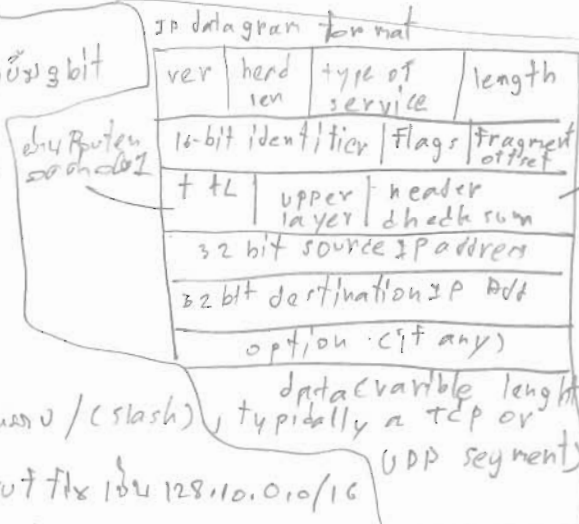 IP datagram format
bit
ver head len type of service length
16-bit identifier flags fragment offset
ttL upper layer header checksum
ผ่าน Router
32 bit source IP address
32 bit destination IP Add
option (if any)
data (varible lenght, typically a TCP or UDP segment)
/ (slash)
เช่น 128.10.0.0/16